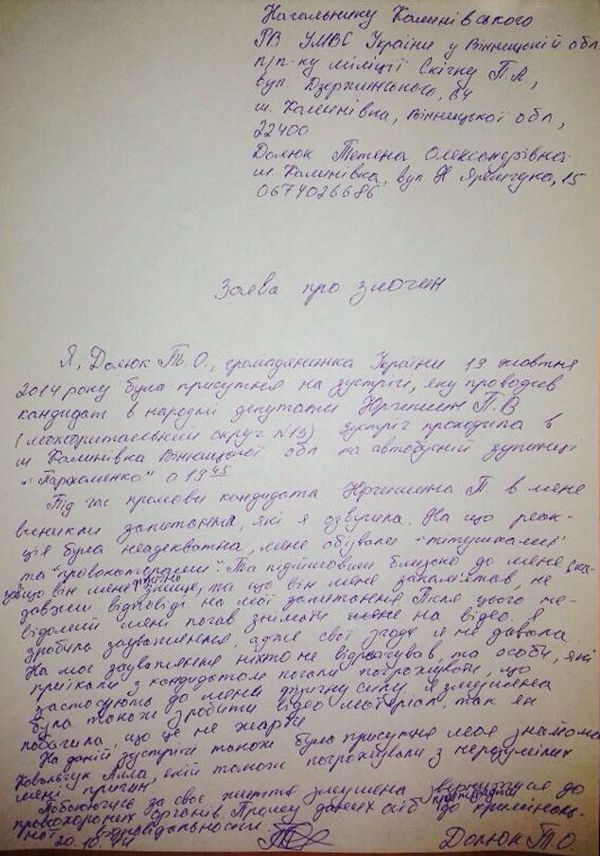 Начальнику Калинівського
РВ УМВС України у Вінницькій обл
п/п-ку міліції Скічку П.А,
вул Дзержинського, 64
м. Калинівка, Вінницької обл,
22400
Долюк Тетена Олександрівна
м Калинівка, вул Н Яремчука, 15
0674026686
Заява про злочин
Я, Долюк Т.О., громадянинка України 19 жовтня
2014 року була присутня на зустрічі, яку проводив
кандидат в народні депутати Юрчишин П.В
(мажоритаєвний округ №13) зустріч проходила в
м Калинівка Вінницької обл на автобусній зупинці
"Пархоменко" о 19 45
Під час промови кандидата Юрчишена П. в мене
виникли запитання, які я озвучила. На що реак-
ція була неадекватна, мене обізвали "тітушками"
та "провокаторами". Та підійшовши близько до мене ска-
завши що він мене знище, та що він мене запам'ятав, не
давши відповіді на мої запитання Після цього не-
відомий мені почав знімати мене на відео. Я
зробила зауваження, адже свої згоди я не давала
На моє зауваження ніхто не відреагував, та особи, які
приїхали з кандидатом почали погрожувати, що
застосують до мене фізичну силу. Я змушена
була також зробити відео матеріал, так як
побачила, що це не жарти
На даній зустрічі також була присутня моя знайома
Ковальчук Алла, якій також погрожували з незрозумілих
мені причин.
Побоюючись за своє життя змушена звернутися до
правоохороних органів. Прошу даних осіб притягнути до криміналь-
ної відповідальності.
20.10.14 Долюк Т.О.